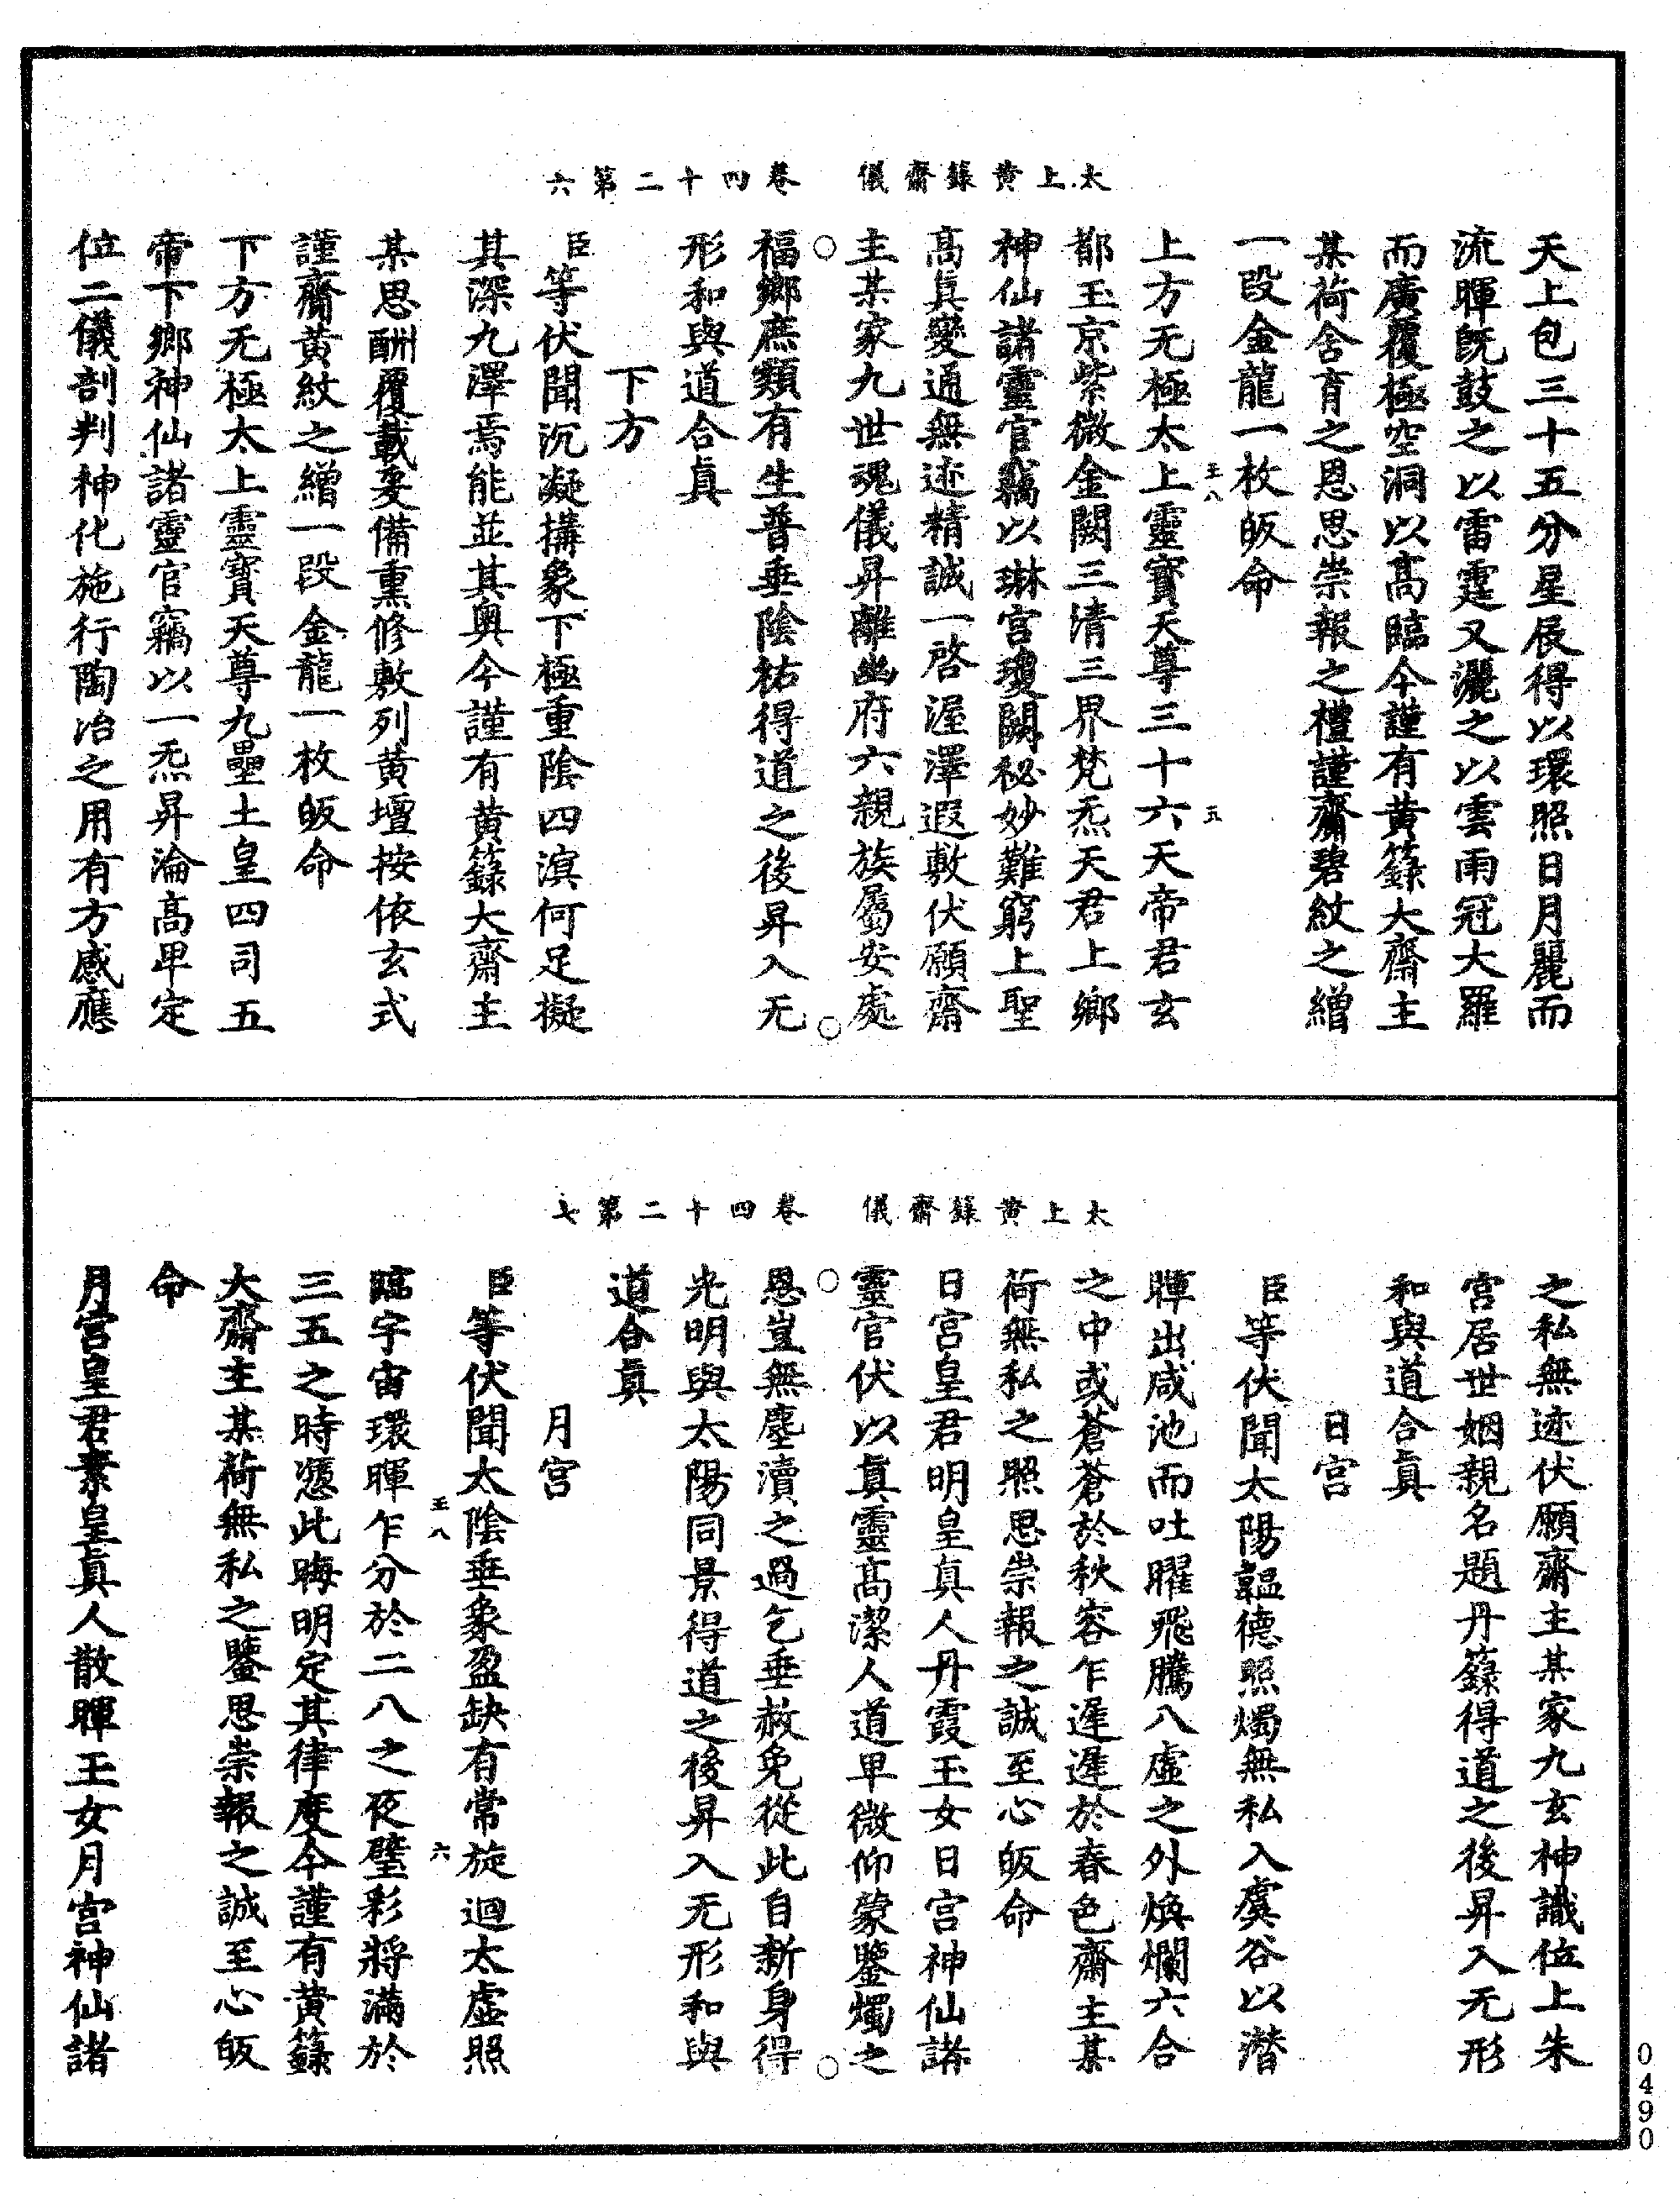 太上黃籙齋儀　卷四十二第六
天上包三十五分星辰得以環照日月麗而
流暉旣鼓之以雷霆又灑之以雲雨冠大羅
而廣覆極空洞以高臨今謹有黃籙大齋主
某荷含育之恩思崇報之禮謹齎碧紋之繒
一段金龍一枚皈命
王八　五
上方无極太上靈寶天尊三十六天帝君玄
都玉京紫微金闕三清三界梵炁天君上鄉
神仙諸靈官竊以琳宮瓊闕秘妙難窮上聖
高眞變通無迹精誠一啓渥澤遐敷伏願齋
主某家九世魂儀昇離幽府六親族屬安處
福鄉庶類有生普垂陰祐得道之後昇入无
形和與道合眞
下方
臣等伏聞沉凝搆象下極重陰四溟何足擬
其深九澤焉能並其奧今謹有黃籙大齋主
某思酬覆載爰備熏修敷列黃壇按依玄式
謹齎黃紋之繒一段金龍一枚皈命
下方无極太上靈寶天尊九壘土皇四司五
帝下鄉神仙諸靈官竊以一炁昇淪高卑定
位二儀剖判神化施行陶冶之用有方感應
太上黃籙齋儀　卷四十二第七
之私無迹伏願齋主某家九玄神識位上朱
宮居世姻親名題丹籙得道之後昇入无形
和與道合眞
日宮
臣等伏聞太陽謳德照燭無私入虞谷以潛
暉出咸池而吐曜飛騰八虛之外煥爛六合
之中或蒼蒼於秋容乍遲遲於春色齋主某
荷無私之照思崇報之誠至心皈命
日宮皇君明皇眞人丹霞玉女日宮神仙諸
靈官伏以眞靈高潔人道卑微仰蒙鑒燭之
恩豈無塵瀆之過乞垂赦免從此自新身得
光明與太陽同景得道之後昇入无形和與
道合眞
月宮
臣等伏聞太陰垂象盈缺有常旋迴太虛照
王八　六
臨宇宙環暉乍分於二八之夜璧彩將滿於
三五之時憑此晦明定其律度今謹有黃籙
大齋主某荷無私之鑒思崇報之誠至心皈
命
月宮皇君素皇眞人散暉玉女月宮神仙諸
0490